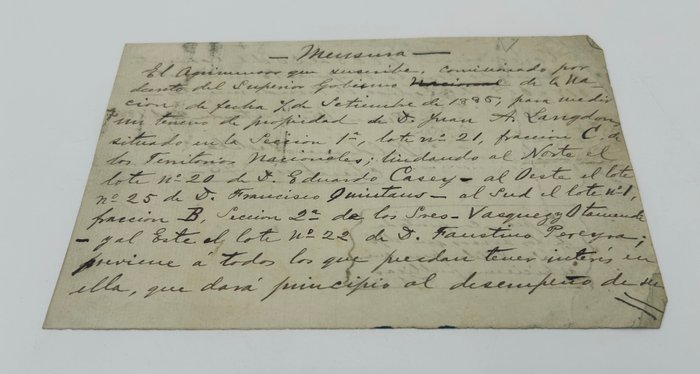 — Mensura —
El Agrimensor que suscribe, comisionado por
decreto del Superior Gobierno Nacional de la Na-
cion, de fecha de Setiembre de 1885, para medir
un terreno de propiedad de D. Juan A. Langdon,
situado en la Sección 1ª, lote nº 21, fraccion C. de
los Territorios Nacionales; lindando al Norte el
lote nº 20 de D. Eduardo Casey - al Oeste el lote
nº 25 de D. Francisco Quintana - al Sud el lote nº 1,
fraccion B, Sección 2ª de los Sres. Vasquez y Otamendi
- y al Este el lote Nº 22 de D. Faustino Pereyra;
previene á todos los que puedan tener interés en
ella, que dará principio al desempeño de su